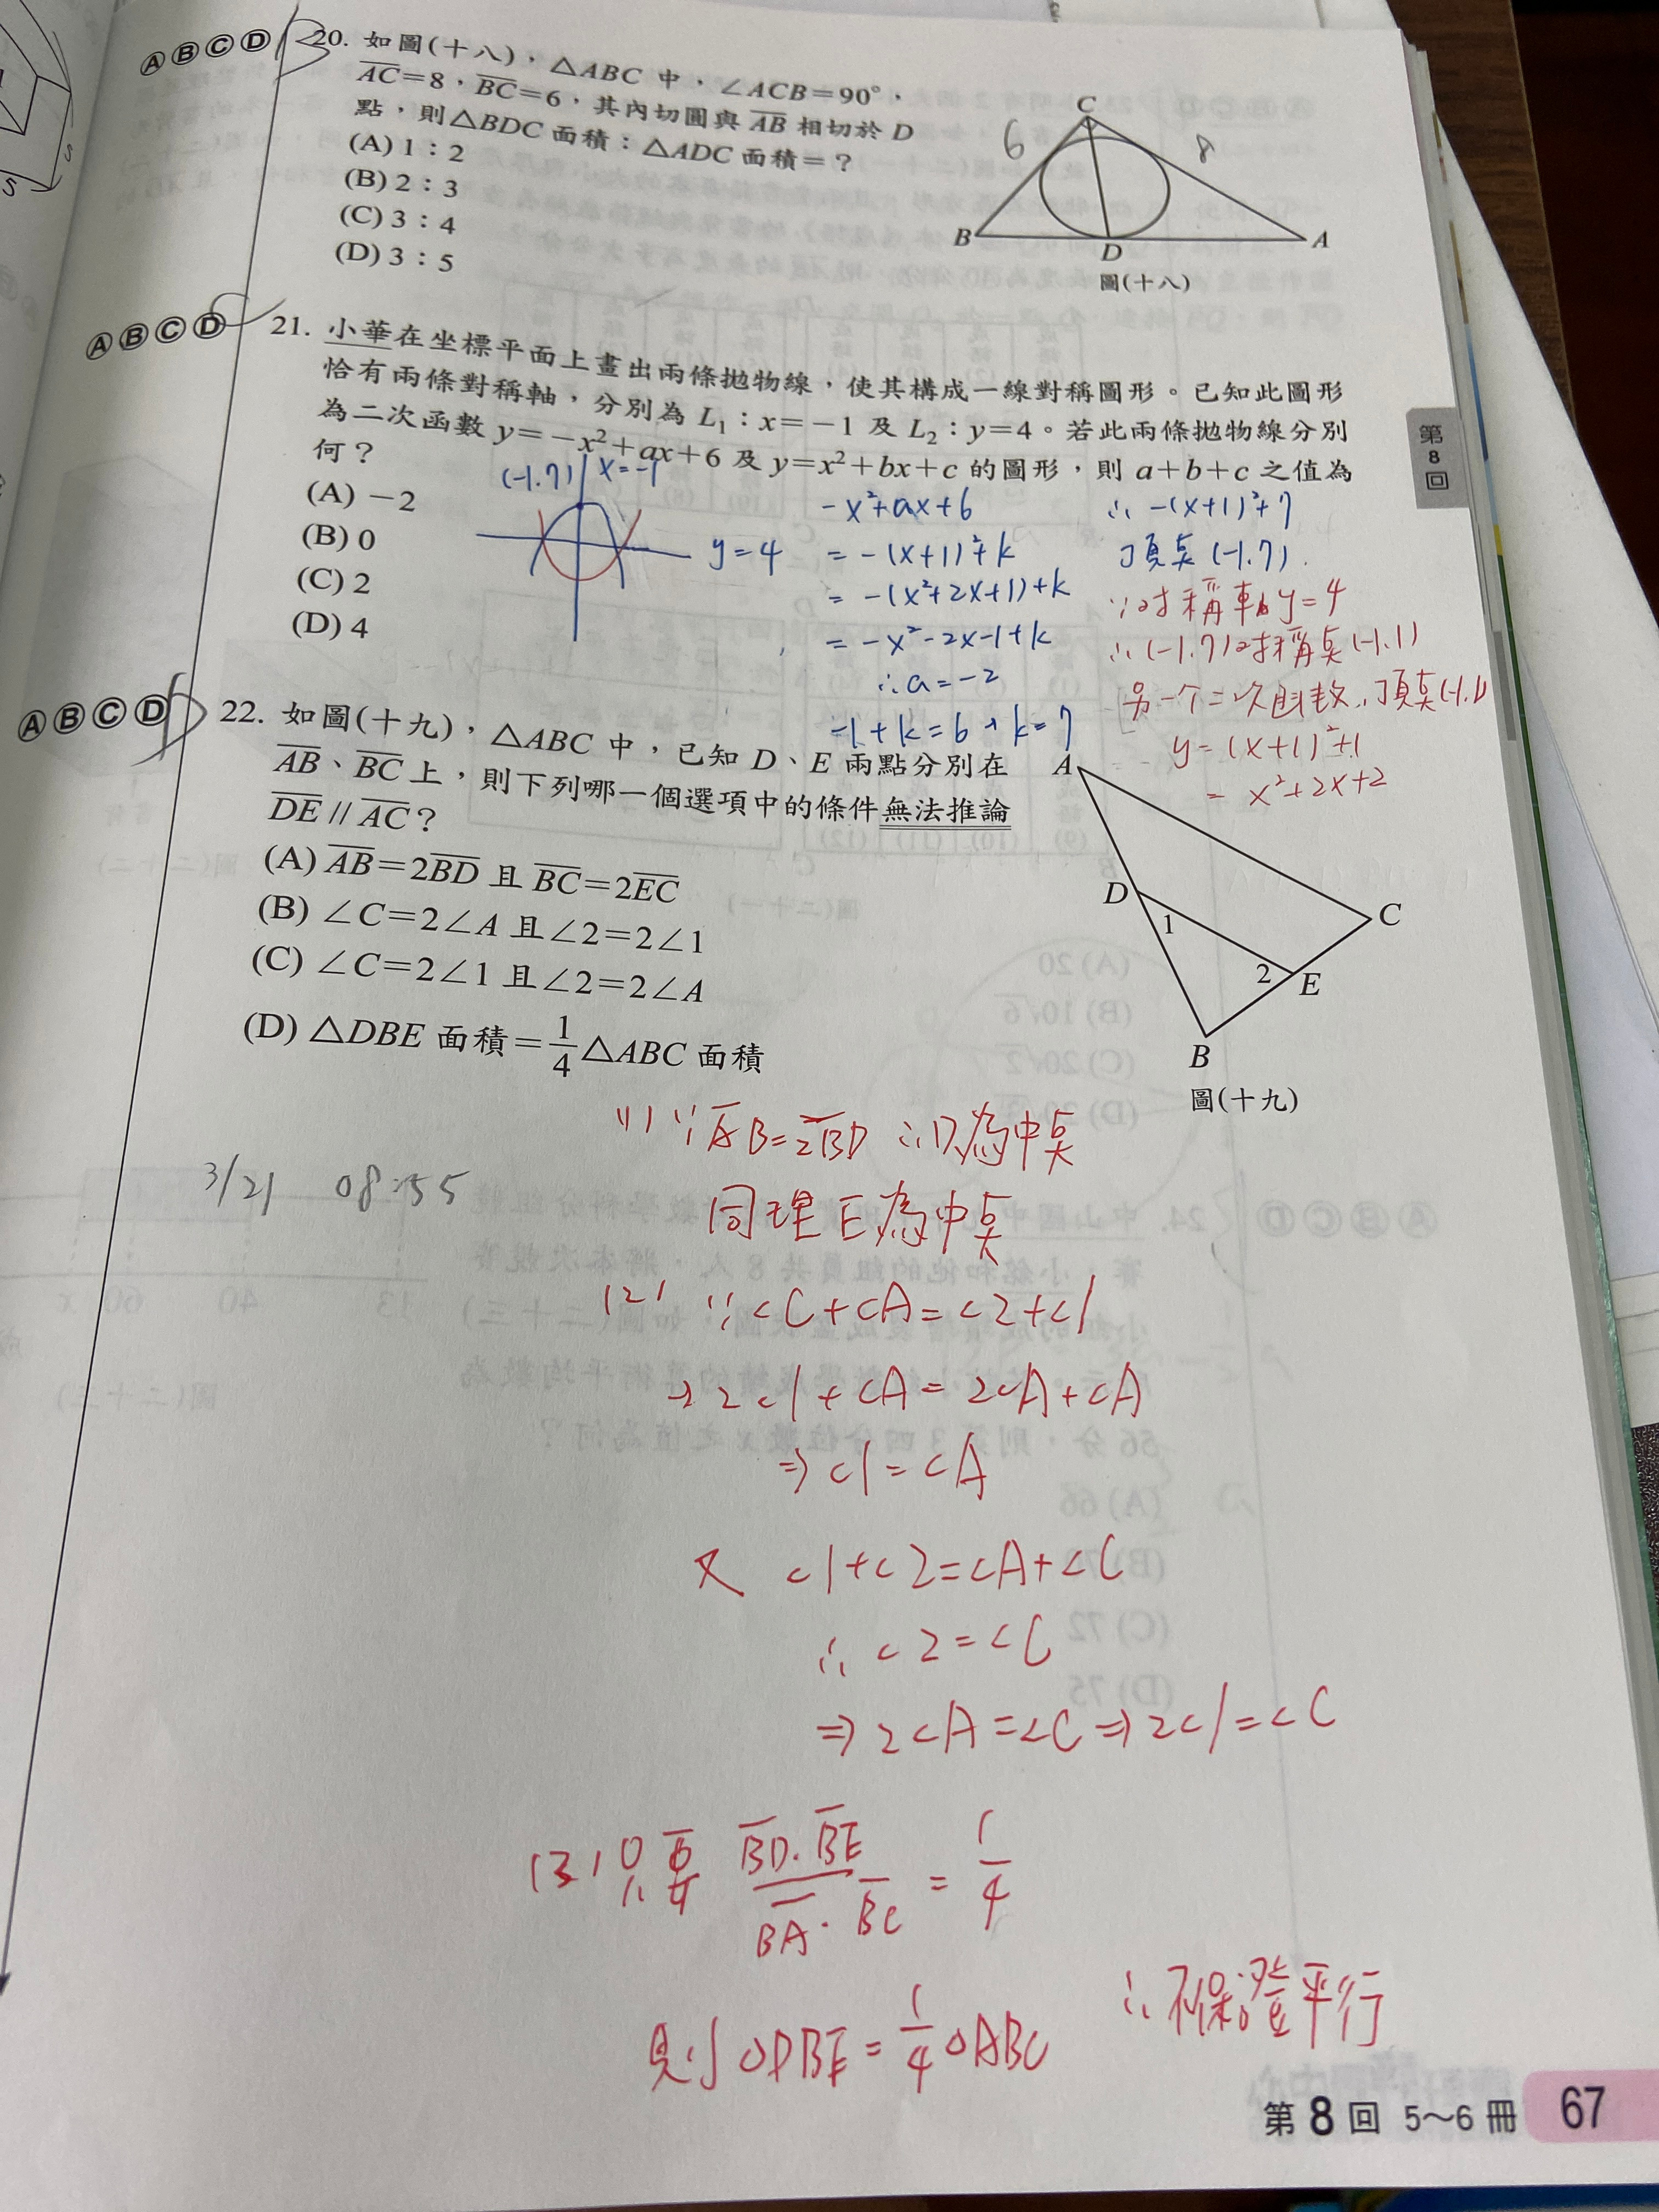 ⒶⒷⒸⒹ 20. 如圖(十八),△ABC 中,∠ACB=90°,
AC=8,BC=6,其內切圓與 AB 相切於 D
點,則△BDC 面積:△ADC 面積=?
(A) 1:2
(B) 2:3
(C) 3:4
(D) 3:5
C
6
8
B
D
A
圖(十八)
ⒶⒷⒸⒹ 21. 小華在坐標平面上畫出兩條拋物線,使其構成一線對稱圖形。已知此圖形
恰有兩條對稱軸,分別為 L₁:x=-1 及 L₂:y=4。若此兩條拋物線分別
為二次函數 y=-x²+ax+6 及 y=x²+bx+c 的圖形,則 a+b+c 之值為
何?
(A) -2
(B) 0
(C) 2
(D) 4
(-1.7) x=-1
y=4
-x²+ax+6
=-(x+1)²+k
=-(x²+2x+1)+k
=-x²-2x-1+k
∴a=-2
-1+k=6, k=7
∴ -(x+1)²+7
頂點(-1.7).
∵对稱軸y=4
∴(-1.7)对稱點(-1.1)
另一个二次函数,頂點(-1.1)
y=(x+1)²+1
= x²+2x+2
第8回
ⒶⒷⒸⒹ 22. 如圖(十九),△ABC 中,已知 D、E 兩點分別在
AB、BC 上,則下列哪一個選項中的條件無法推論
DE // AC?
(A) AB=2BD 且 BC=2EC
(B) ∠C=2∠A 且∠2=2∠1
(C) ∠C=2∠1 且∠2=2∠A
(D) △DBE 面積=1/4△ABC 面積
A
D
1
C
2
E
B
圖(十九)
3/21 08:55
(1) ∵AB=2BD ∴D為中點
同理E為中點
(2) ∵∠C+∠A=∠2+∠1
→2∠1+∠A=2∠A+∠A
⇒∠1=∠A
又 ∠1+∠2=∠A+∠C
∴ ∠2=∠C
⇒2∠A=∠C⇒2∠1=∠C
(3) 只要 BD·BE/BA·BC = 1/4
則△DBE=1/4△ABC
∴不保證平行
第 8 回 5~6 冊 67